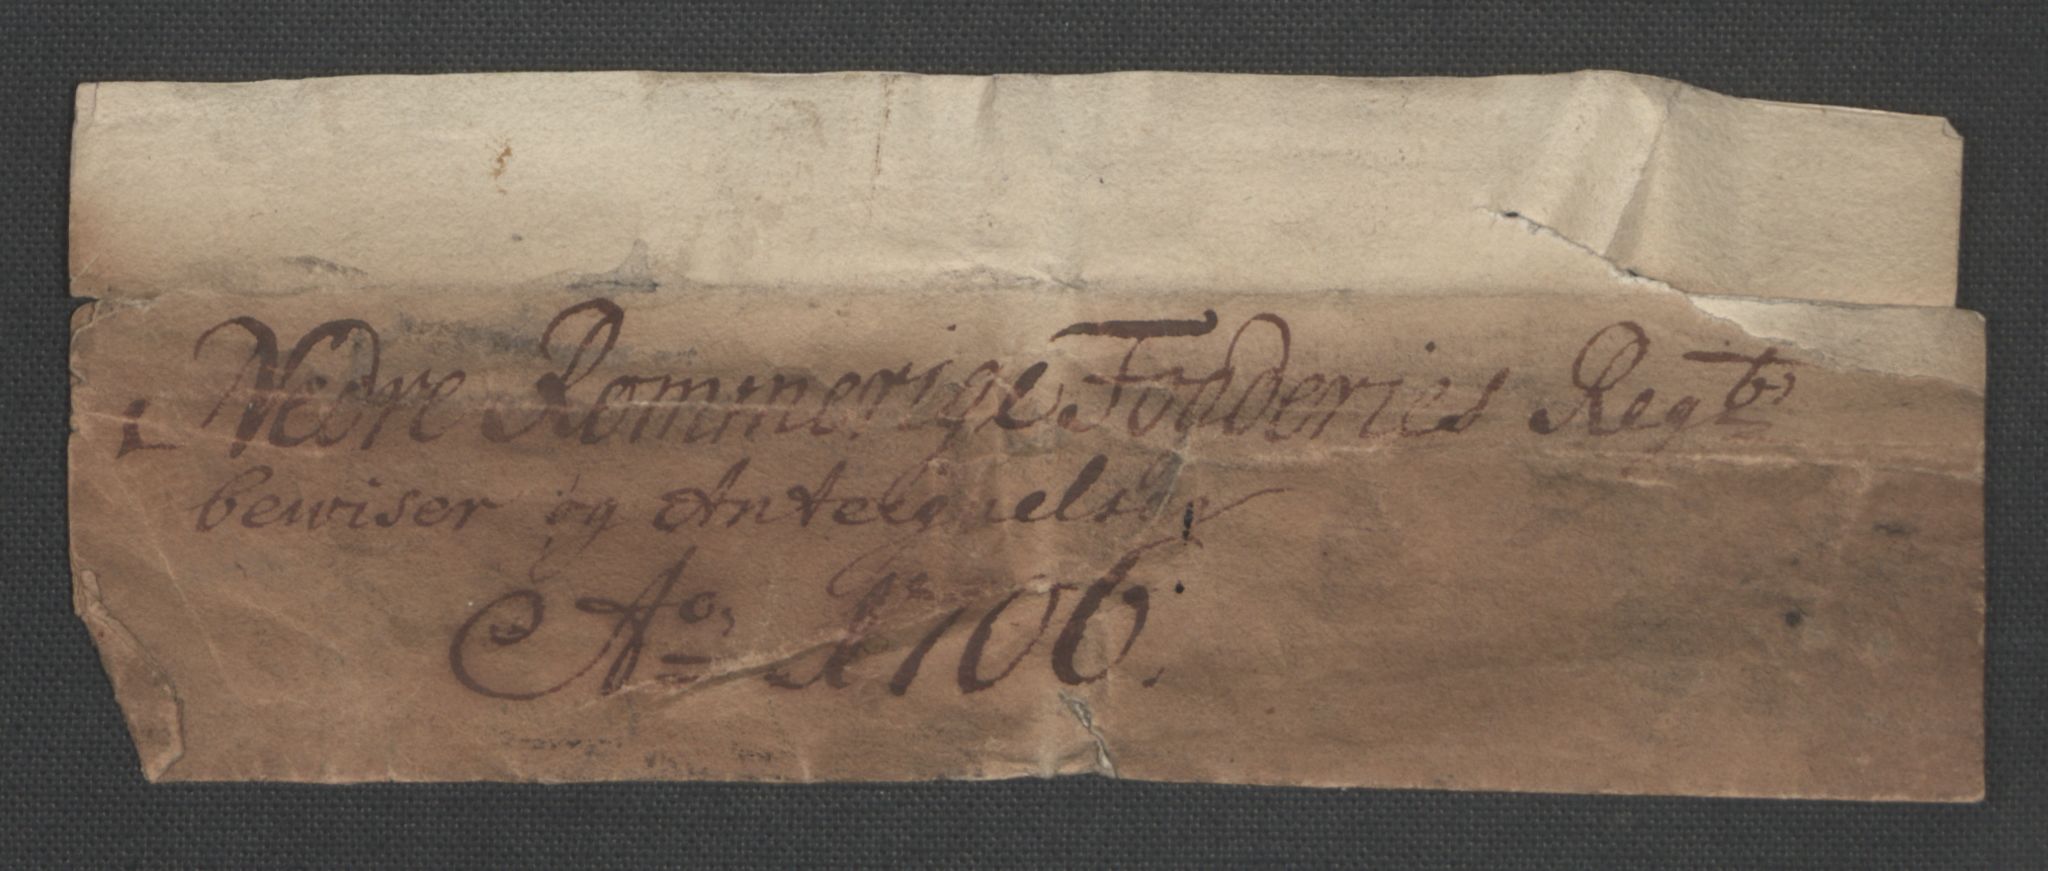 1 Nedre Rommerige Fogderies Reg.bs
bewiser og Anteignelser
Ao 1706.